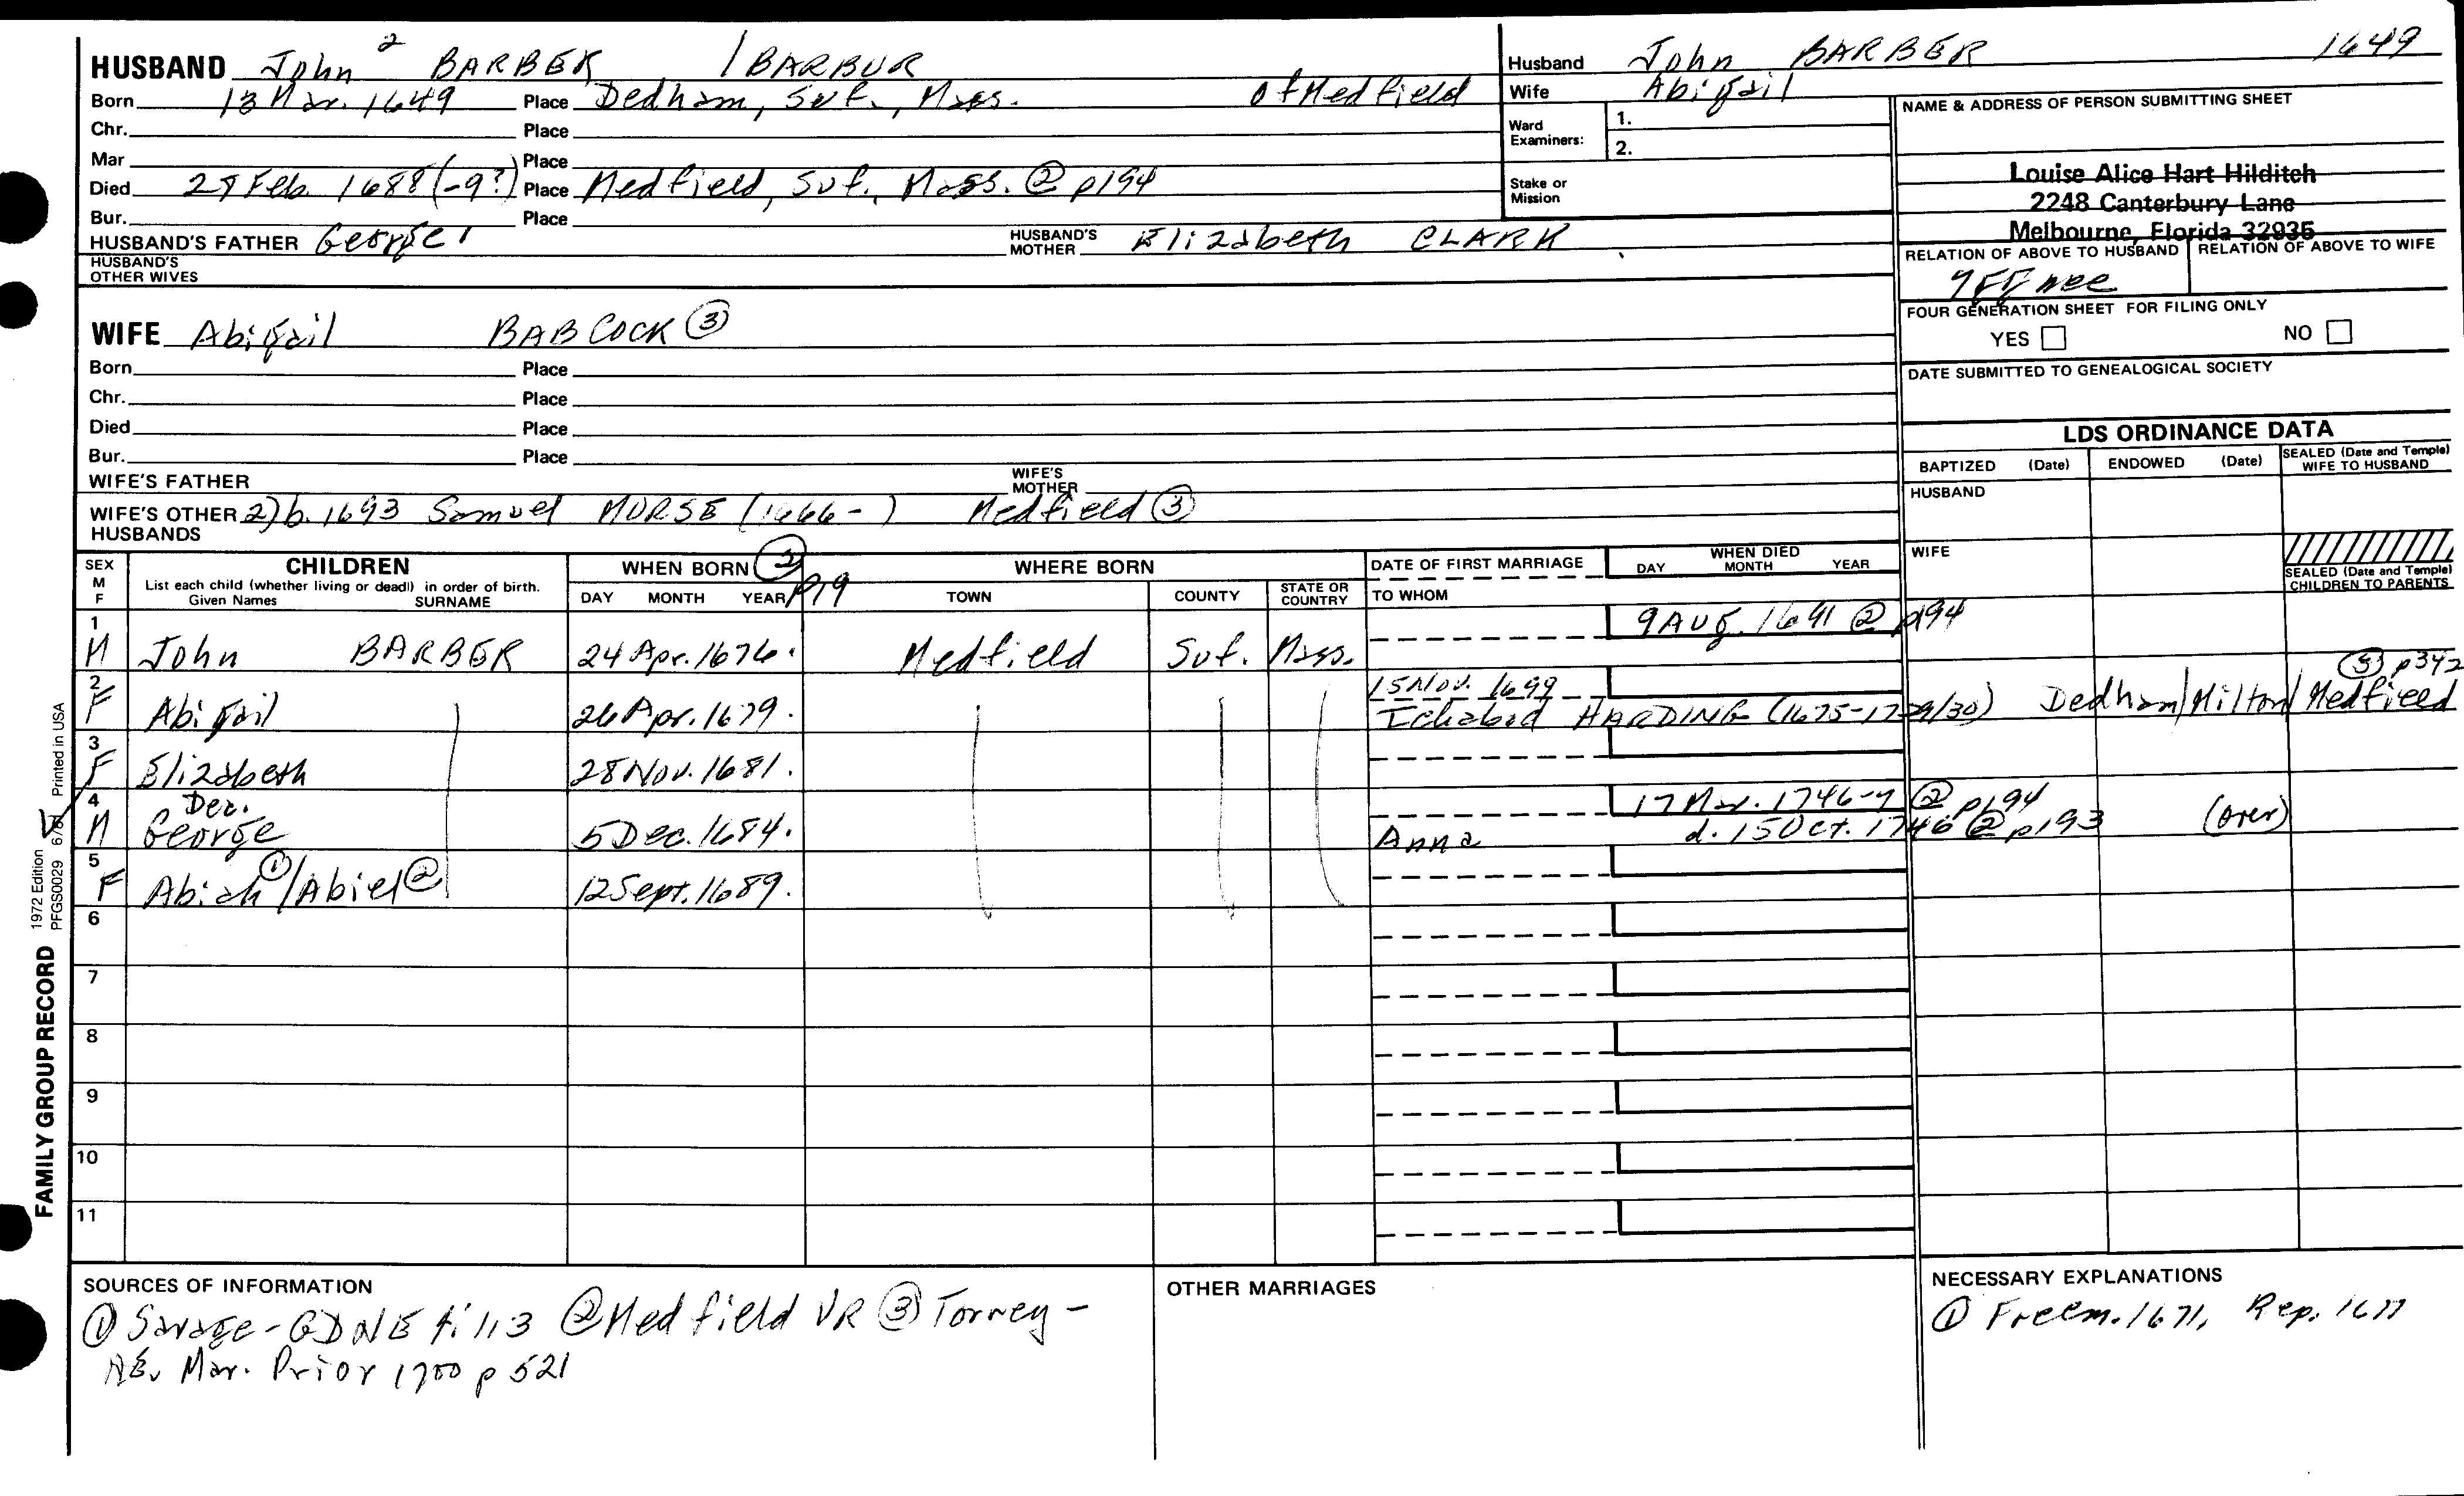 HUSBAND John 2 BARBER / BARBUR
Born 13 Mar. 1649 Place Dedham, Suf., Mass. of Medfield
Chr. Place
Mar Place
Died 28 Feb. 1688 (-9?) Place Medfield, Suf., Mass. ② p194
Bur. Place
HUSBAND'S FATHER George 1 HUSBAND'S MOTHER Elizabeth CLARK
HUSBAND'S OTHER WIVES
Husband John BARBER 1649
Wife Abigail
Ward Examiners: 1.
2.
Stake or Mission
NAME & ADDRESS OF PERSON SUBMITTING SHEET
Louise Alice Hart Hilditch
2248 Canterbury Lane
Melbourne, Florida 32935
RELATION OF ABOVE TO HUSBAND RELATION OF ABOVE TO WIFE
FOUR GENERATION SHEET FOR FILING ONLY
YES NO
DATE SUBMITTED TO GENEALOGICAL SOCIETY
WIFE Abigail BABCOCK ③
Born Place
Chr. Place
Died Place
Bur. Place
WIFE'S FATHER WIFE'S MOTHER
WIFE'S OTHER HUSBANDS 2) b. 1693 Samuel MORSE (1666- ) Medfield ③
LDS ORDINANCE DATA
BAPTIZED (Date) ENDOWED (Date) SEALED (Date and Temple) WIFE TO HUSBAND
HUSBAND
WIFE
SEALED (Date and Temple) CHILDREN TO PARENTS
SEX M F
CHILDREN
List each child (whether living or dead)) in order of birth.
Given Names SURNAME
WHEN BORN ② p19
DAY MONTH YEAR
WHERE BORN
TOWN COUNTY STATE OR COUNTRY
DATE OF FIRST MARRIAGE
TO WHOM
WHEN DIED
DAY MONTH YEAR
1 M John BARBER 24 Apr. 1676. Medfield Suf. Mass. 9 Aug. 1691 ② p194
2 F Abigail 26 Apr. 1679. 15 Nov. 1699 ③ p342
Ichabod HARDING (1675-1729/30) Dedham/Milton/Medfield
3 F Elizabeth 28 Nov. 1681.
4 M Dec. George 5 Dec. 1684. 17 Mar. 1746-7 ② p194
Anna d. 15 Oct. 1746 ② p193 (over)
5 F Abiah ① /Abiel ② 12 Sept. 1689.
6
7
8
9
10
11
FAMILY GROUP RECORD 1972 Edition PFGS0029 Printed in USA
SOURCES OF INFORMATION
① Savage-GDNE 1:113 ② Medfield VR ③ Torrey -
NE. Mar. Prior 1700 p 521
OTHER MARRIAGES
NECESSARY EXPLANATIONS
① Freem. 1671, Rep. 1677